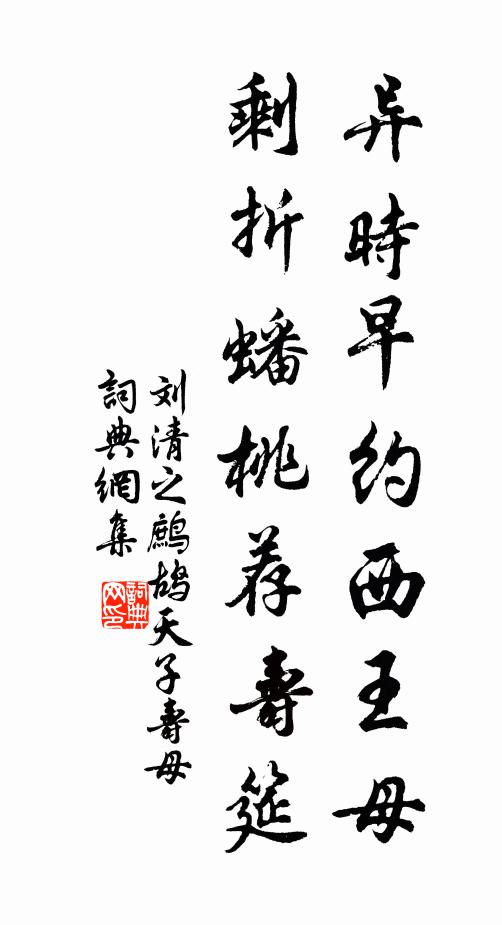 异時早约西王母
剩折蟠桃荐壽筵
刘清之鹧鸪天子壽母
詞典網集
詞典
网印